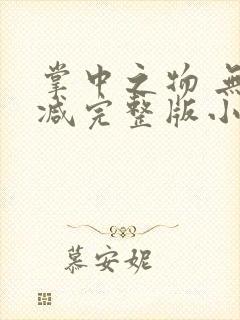 掌中之物 無
减完整版小
慕安妮